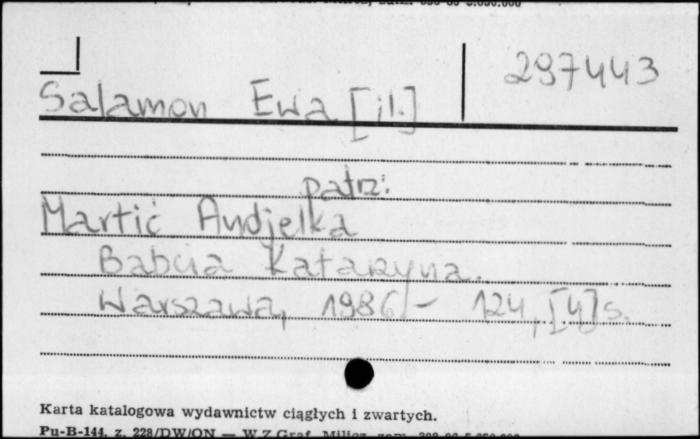 297443
Salamon Ewa [il.]
patrz:
Martić Andjelka
Babcia Katarzyna.
Warszawa, 1986 - 124, [4] s.
Karta katalogowa wydawnictw ciągłych i zwartych.
Pu-B-144, z. 228/DW/ON — W.Z.Graf. Milicz, zam.